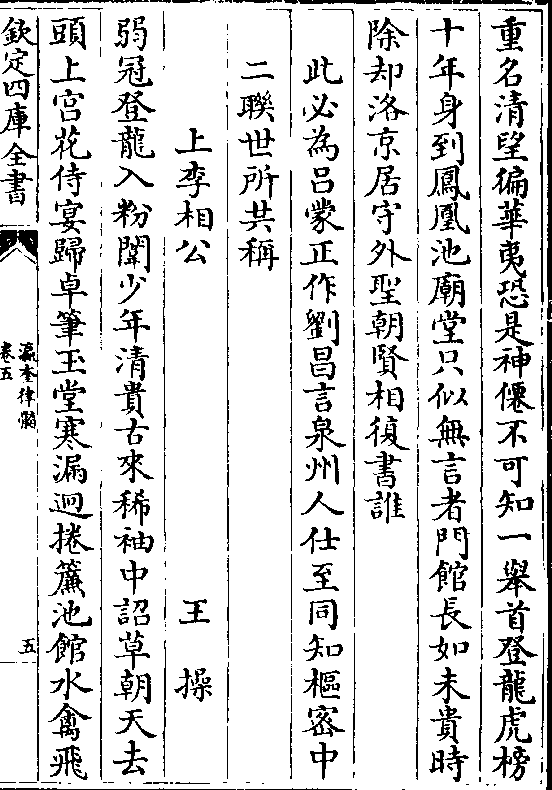 重名清望徧華夷恐是神僊不可知一舉首登龍虎榜
十年身到鳳凰池廟堂只似無言者門館長如未貴時
除却洛京居守外聖朝賢相復書誰
此必為呂蒙正作劉昌言泉州人仕至同知樞密中
二聯世所共稱
上李相公 王操
弱冠登龍入粉闈少年清貴古來稀袖中詔草朝天去
頭上宫花侍宴歸卓筆玉堂寒漏迥捲簾池館水禽飛
欽定四庫全書
瀛奎律髓
卷五
五